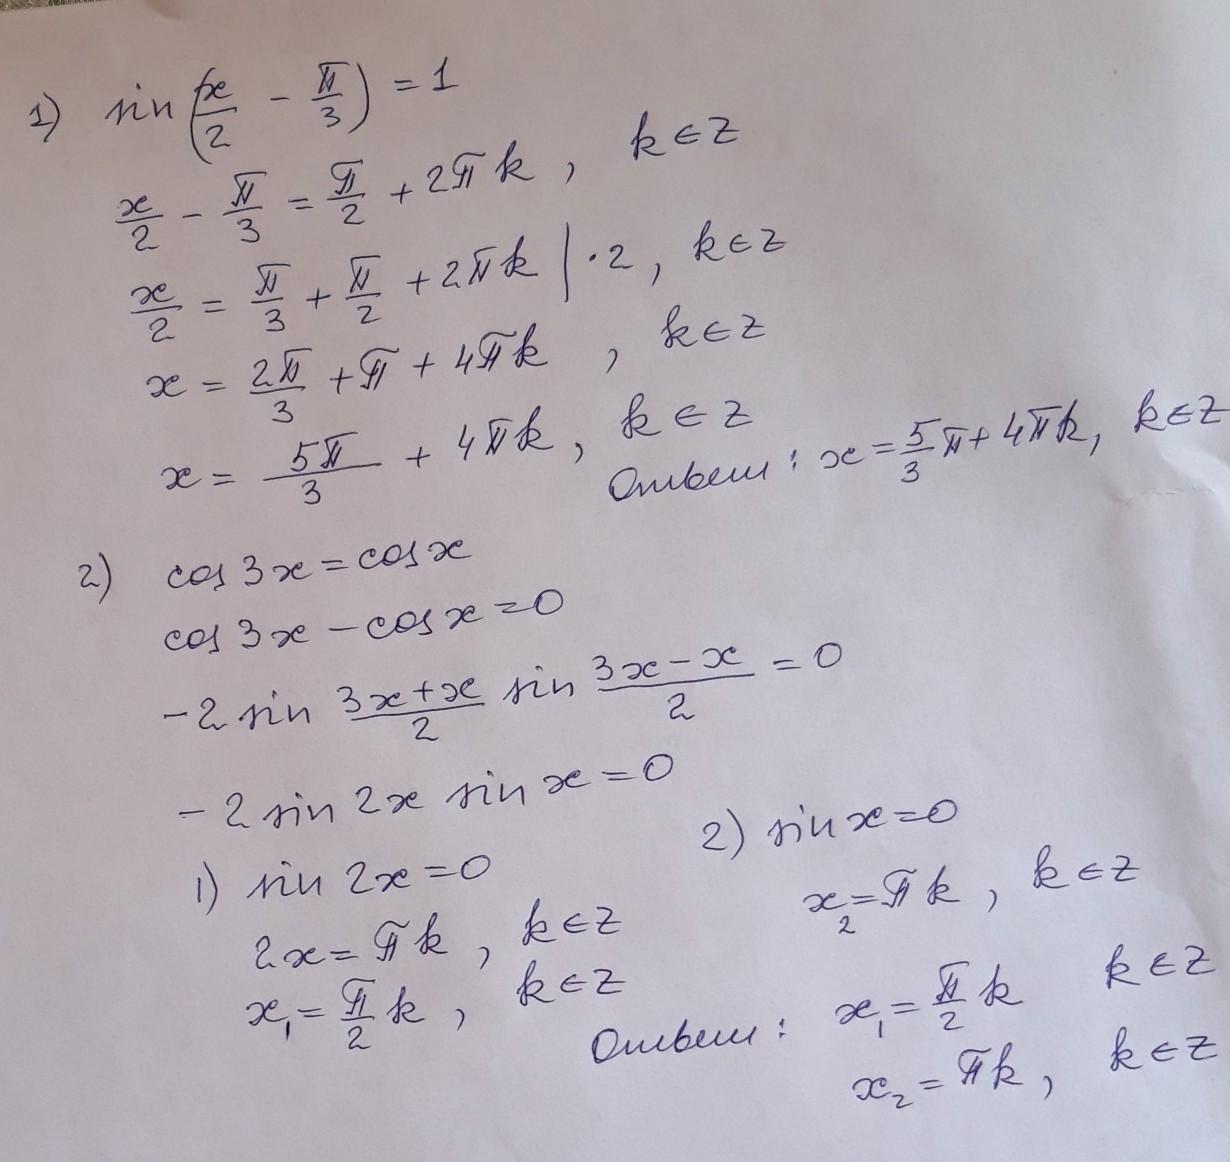 1) sin(x/2 - π/3) = 1
x/2 - π/3 = π/2 + 2πk, k∈Z
x/2 = π/3 + π/2 + 2πk | ·2, k∈Z
x = 2π/3 + π + 4πk, k∈Z
x = 5π/3 + 4πk, k∈Z
Ответ: x = 5/3 π + 4πk, k∈Z
2) cos 3x = cos x
cos 3x - cos x = 0
-2 sin (3x+x)/2 sin (3x-x)/2 = 0
-2 sin 2x sin x = 0
1) sin 2x = 0
2x = πk, k∈Z
x₁ = π/2 k, k∈Z
2) sin x = 0
x₂ = πk, k∈Z
Ответ: x₁ = π/2 k k∈Z
x₂ = πk, k∈Z